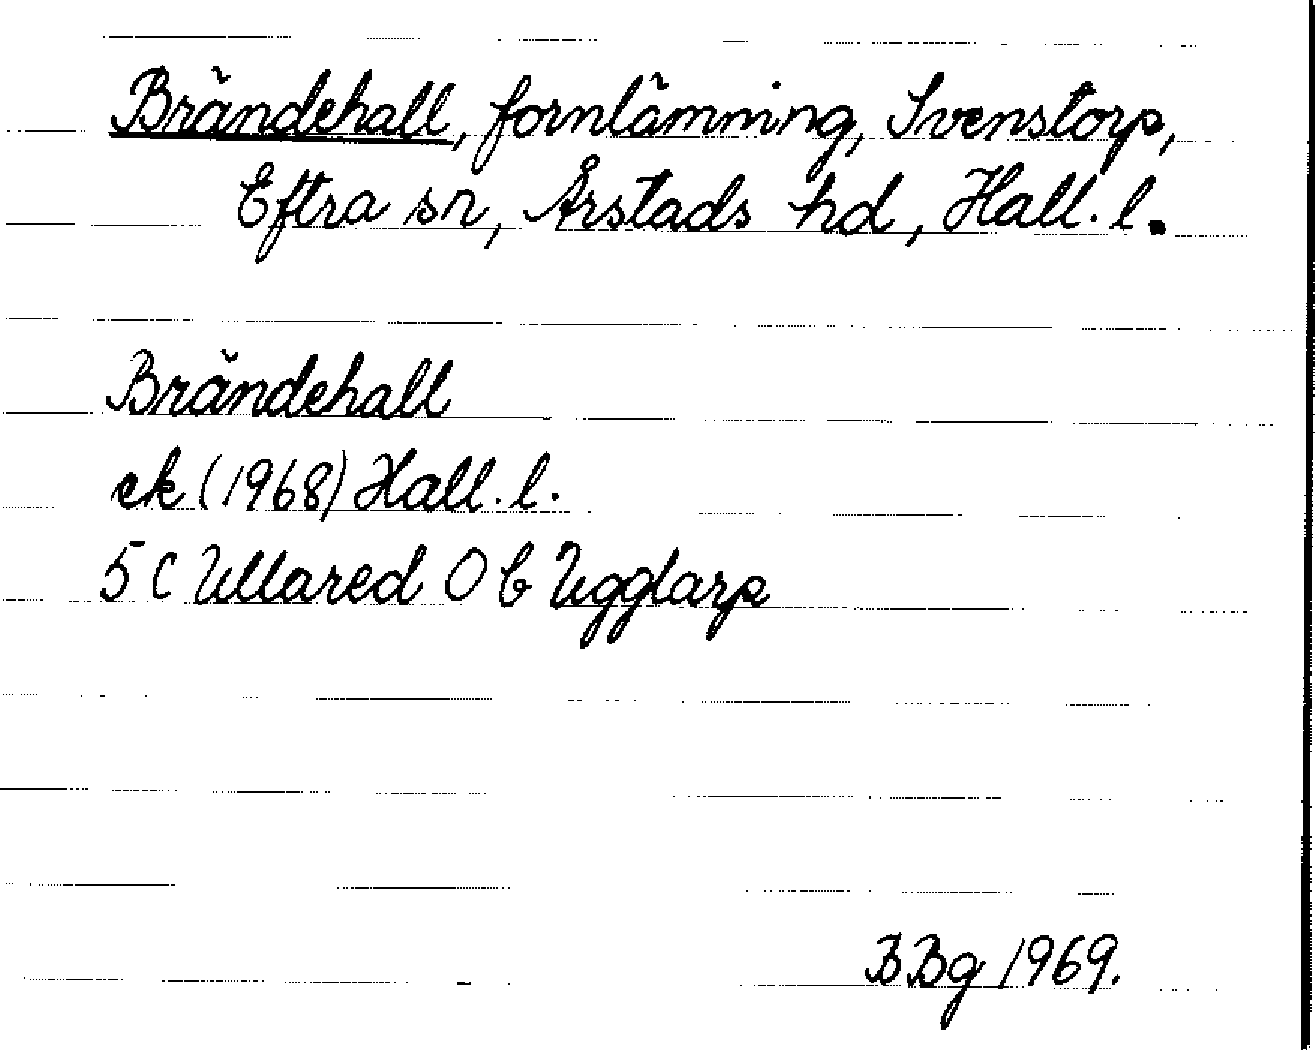 Brändehall, fornlämning, Svenstorp,
Eftra sn, Årstads hd, Hall. l.
Brändehall
ek (1968) Hall. l.
5 C Ullared 0 b Ugglarp
BBg 1969.